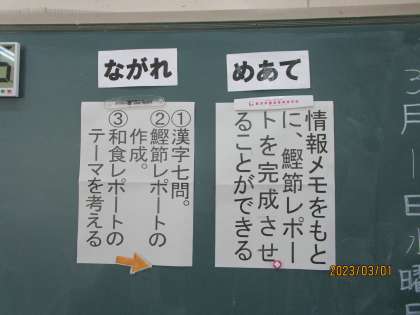 ３月１日水曜日
めあて
情報メモをもと
に、鰹節レポー
トを完成させ
ることができる
ながれ
①漢字七問。
②鰹節レポートの
作成。
③和食レポートの
テーマを考える
2023/03/01